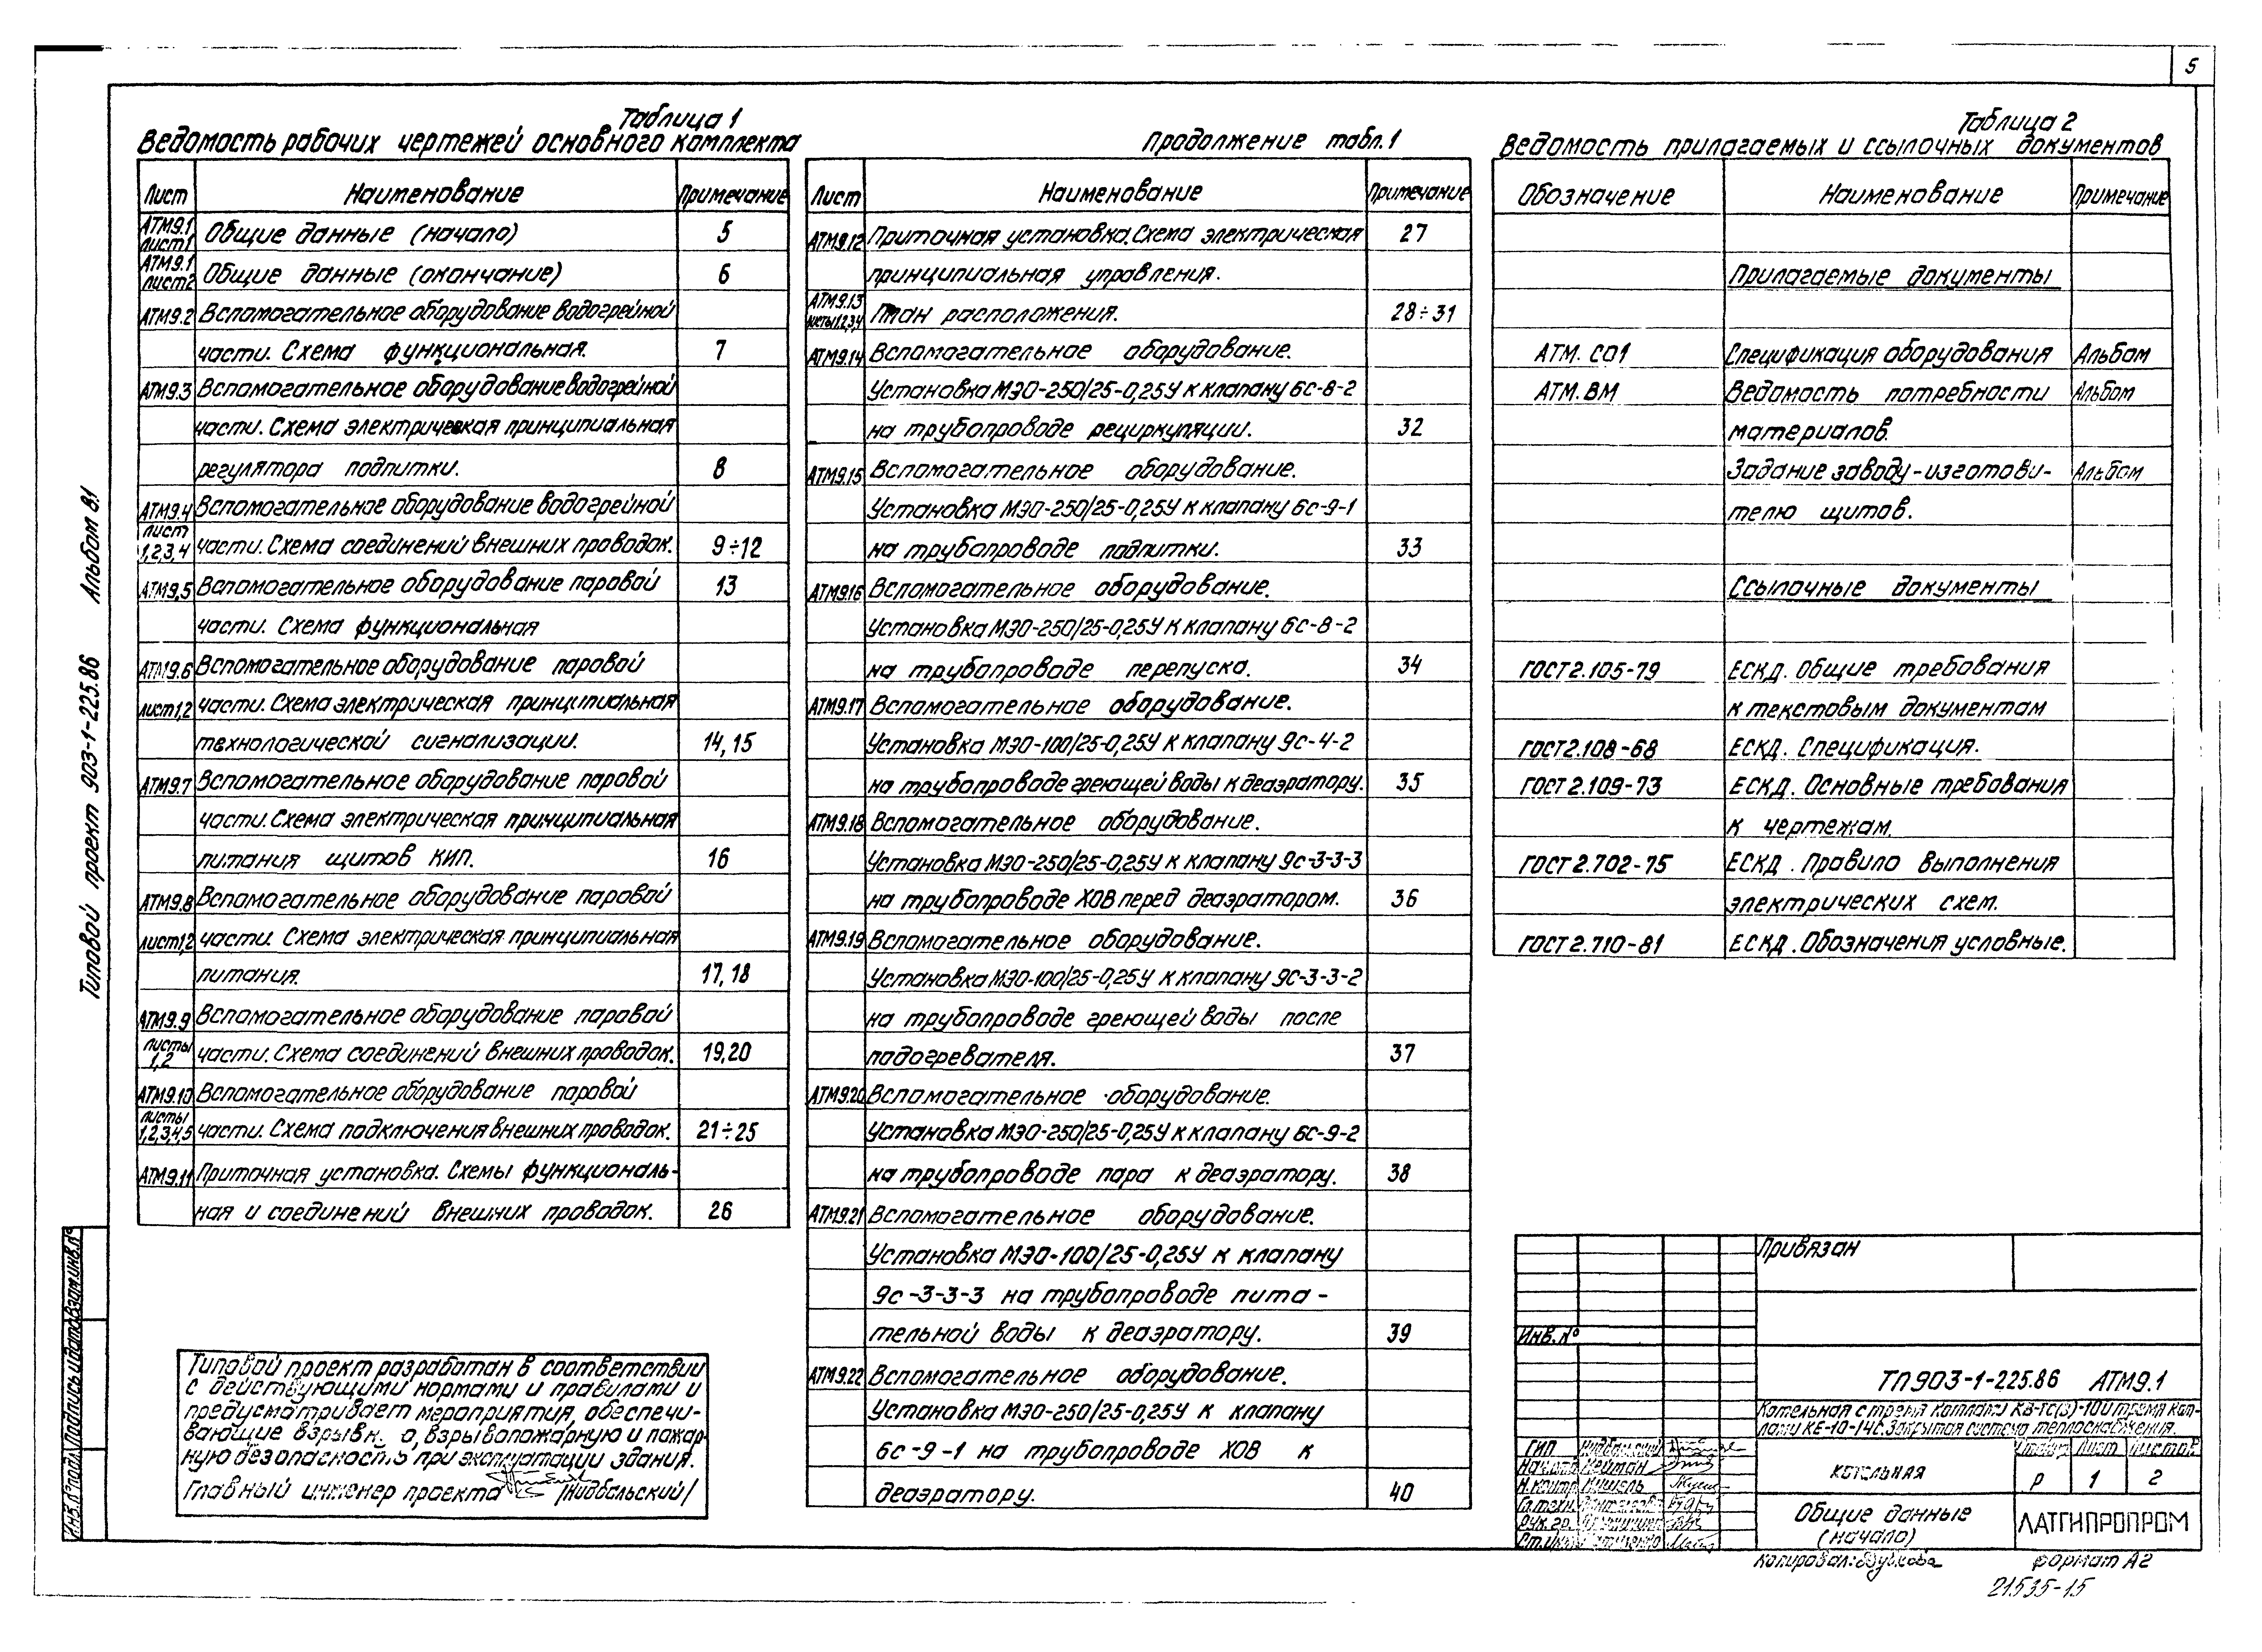 5
Таблица 1
Ведомость рабочих чертежей основного комплекта
Лист Наименование Примечание
АТМ9.1 лист1 Общие данные (начало) 5
АТМ9.1 лист2 Общие данные (окончание) 6
АТМ9.2 Вспомогательное оборудование водогрейной
части. Схема функциональная. 7
АТМ9.3 Вспомогательное оборудование водогрейной
части. Схема электрическая принципиальная
регулятора подпитки. 8
АТМ9.4 Вспомогательное оборудование водогрейной
лист 1,2,3,4 части. Схема соединений внешних проводок. 9÷12
АТМ9.5 Вспомогательное оборудование паровой 13
части. Схема функциональная
АТМ9.6 Вспомогательное оборудование паровой
лист1,2 части. Схема электрическая принципиальная
технологической сигнализации. 14,15
АТМ9.7 Вспомогательное оборудование паровой
части. Схема электрическая принципиальная
питания щитов КИП. 16
АТМ9.8 Вспомогательное оборудование паровой
лист1,2 части. Схема электрическая принципиальная
питания. 17,18
АТМ9.9 Вспомогательное оборудование паровой
листы 1,2 части. Схема соединений внешних проводок. 19,20
АТМ9.10 Вспомогательное оборудование паровой
листы 1,2,3,4,5 части. Схема подключения внешних проводок. 21÷25
АТМ9.11 Приточная установка. Схемы функциональ-
ная и соединений внешних проводок. 26
Продолжение табл.1
Лист Наименование Примечание
АТМ9.12 Приточная установка. Схема электрическая 27
принципиальная управления.
АТМ9.13 листы1,2,3,4 План расположения. 28÷31
АТМ9.14 Вспомогательное оборудование.
Установка МЭО-250/25-0,25У к клапану 6с-8-2
на трубопроводе рециркуляции. 32
АТМ9.15 Вспомогательное оборудование.
Установка МЭО-250/25-0,25У к клапану 6с-9-1
на трубопроводе подпитки. 33
АТМ9.16 Вспомогательное оборудование.
Установка МЭО-250/25-0,25У к клапану 6с-8-2
на трубопроводе перепуска. 34
АТМ9.17 Вспомогательное оборудование.
Установка МЭО-100/25-0,25У к клапану 9с-4-2
на трубопроводе греющей воды к деаэратору. 35
АТМ9.18 Вспомогательное оборудование.
Установка МЭО-250/25-0,25У к клапану 9с-3-3-3
на трубопроводе ХОВ перед деаэратором. 36
АТМ9.19 Вспомогательное оборудование.
Установка МЭО-100/25-0,25У к клапану 9с-3-3-2
на трубопроводе греющей воды после
подогревателя. 37
АТМ9.20 Вспомогательное оборудование.
Установка МЭО-250/25-0,25У к клапану 6с-9-2
на трубопроводе пара к деаэратору. 38
АТМ9.21 Вспомогательное оборудование.
Установка МЭО-100/25-0,25У к клапану
9с-3-3-3 на трубопроводе пита-
тельной воды к деаэратору. 39
АТМ9.22 Вспомогательное оборудование.
Установка МЭО-250/25-0,25У к клапану
6с-9-1 на трубопроводе ХОВ к
деаэратору. 40
Таблица 2
Ведомость прилагаемых и ссылочных документов
Обозначение Наименование Примечание
Прилагаемые документы
АТМ.СО1 Спецификация оборудования Альбом
АТМ.ВМ Ведомость потребности Альбом
материалов.
Задание заводу-изготови- Альбом
телю щитов.
Ссылочные документы
ГОСТ2.105-79 ЕСКД. Общие требования
к текстовым документам
ГОСТ2.108-68 ЕСКД. Спецификация.
ГОСТ2.109-73 ЕСКД. Основные требования
к чертежам.
ГОСТ2.702-75 ЕСКД. Правило выполнения
электрических схем.
ГОСТ2.710-81 ЕСКД. Обозначения условные.
Типовой проект 903-1-225.86 Альбом 8.1
Инв.№подл. Подпись и дата Взам.инв.№
Типовой проект разработан в соответствии
с действующими нормами и правилами и
предусматривает мероприятия, обеспечи-
вающие взрывную, взрывопожарную и пожар-
ную безопасность при эксплуатации здания.
Главный инженер проекта /Нидбальский/
Привязан
Инв.№
ТП903-1-225.86 АТМ9.1
Котельная с тремя котлами КВ-ТС(В)-10 и тремя кот-
лами КЕ-10-14С. Закрытая система теплоснабжения.
ГИП Нидбальский
Нач.отд. Нейман
Н.контр.
Гл.техн.
Рук.гр.
Ст.инж.
котельная
Стадия Лист Листов
Р 1 2
Общие данные
(начало)
ЛАТГИПРОПРОМ
Копировал: формат А2
21535-15